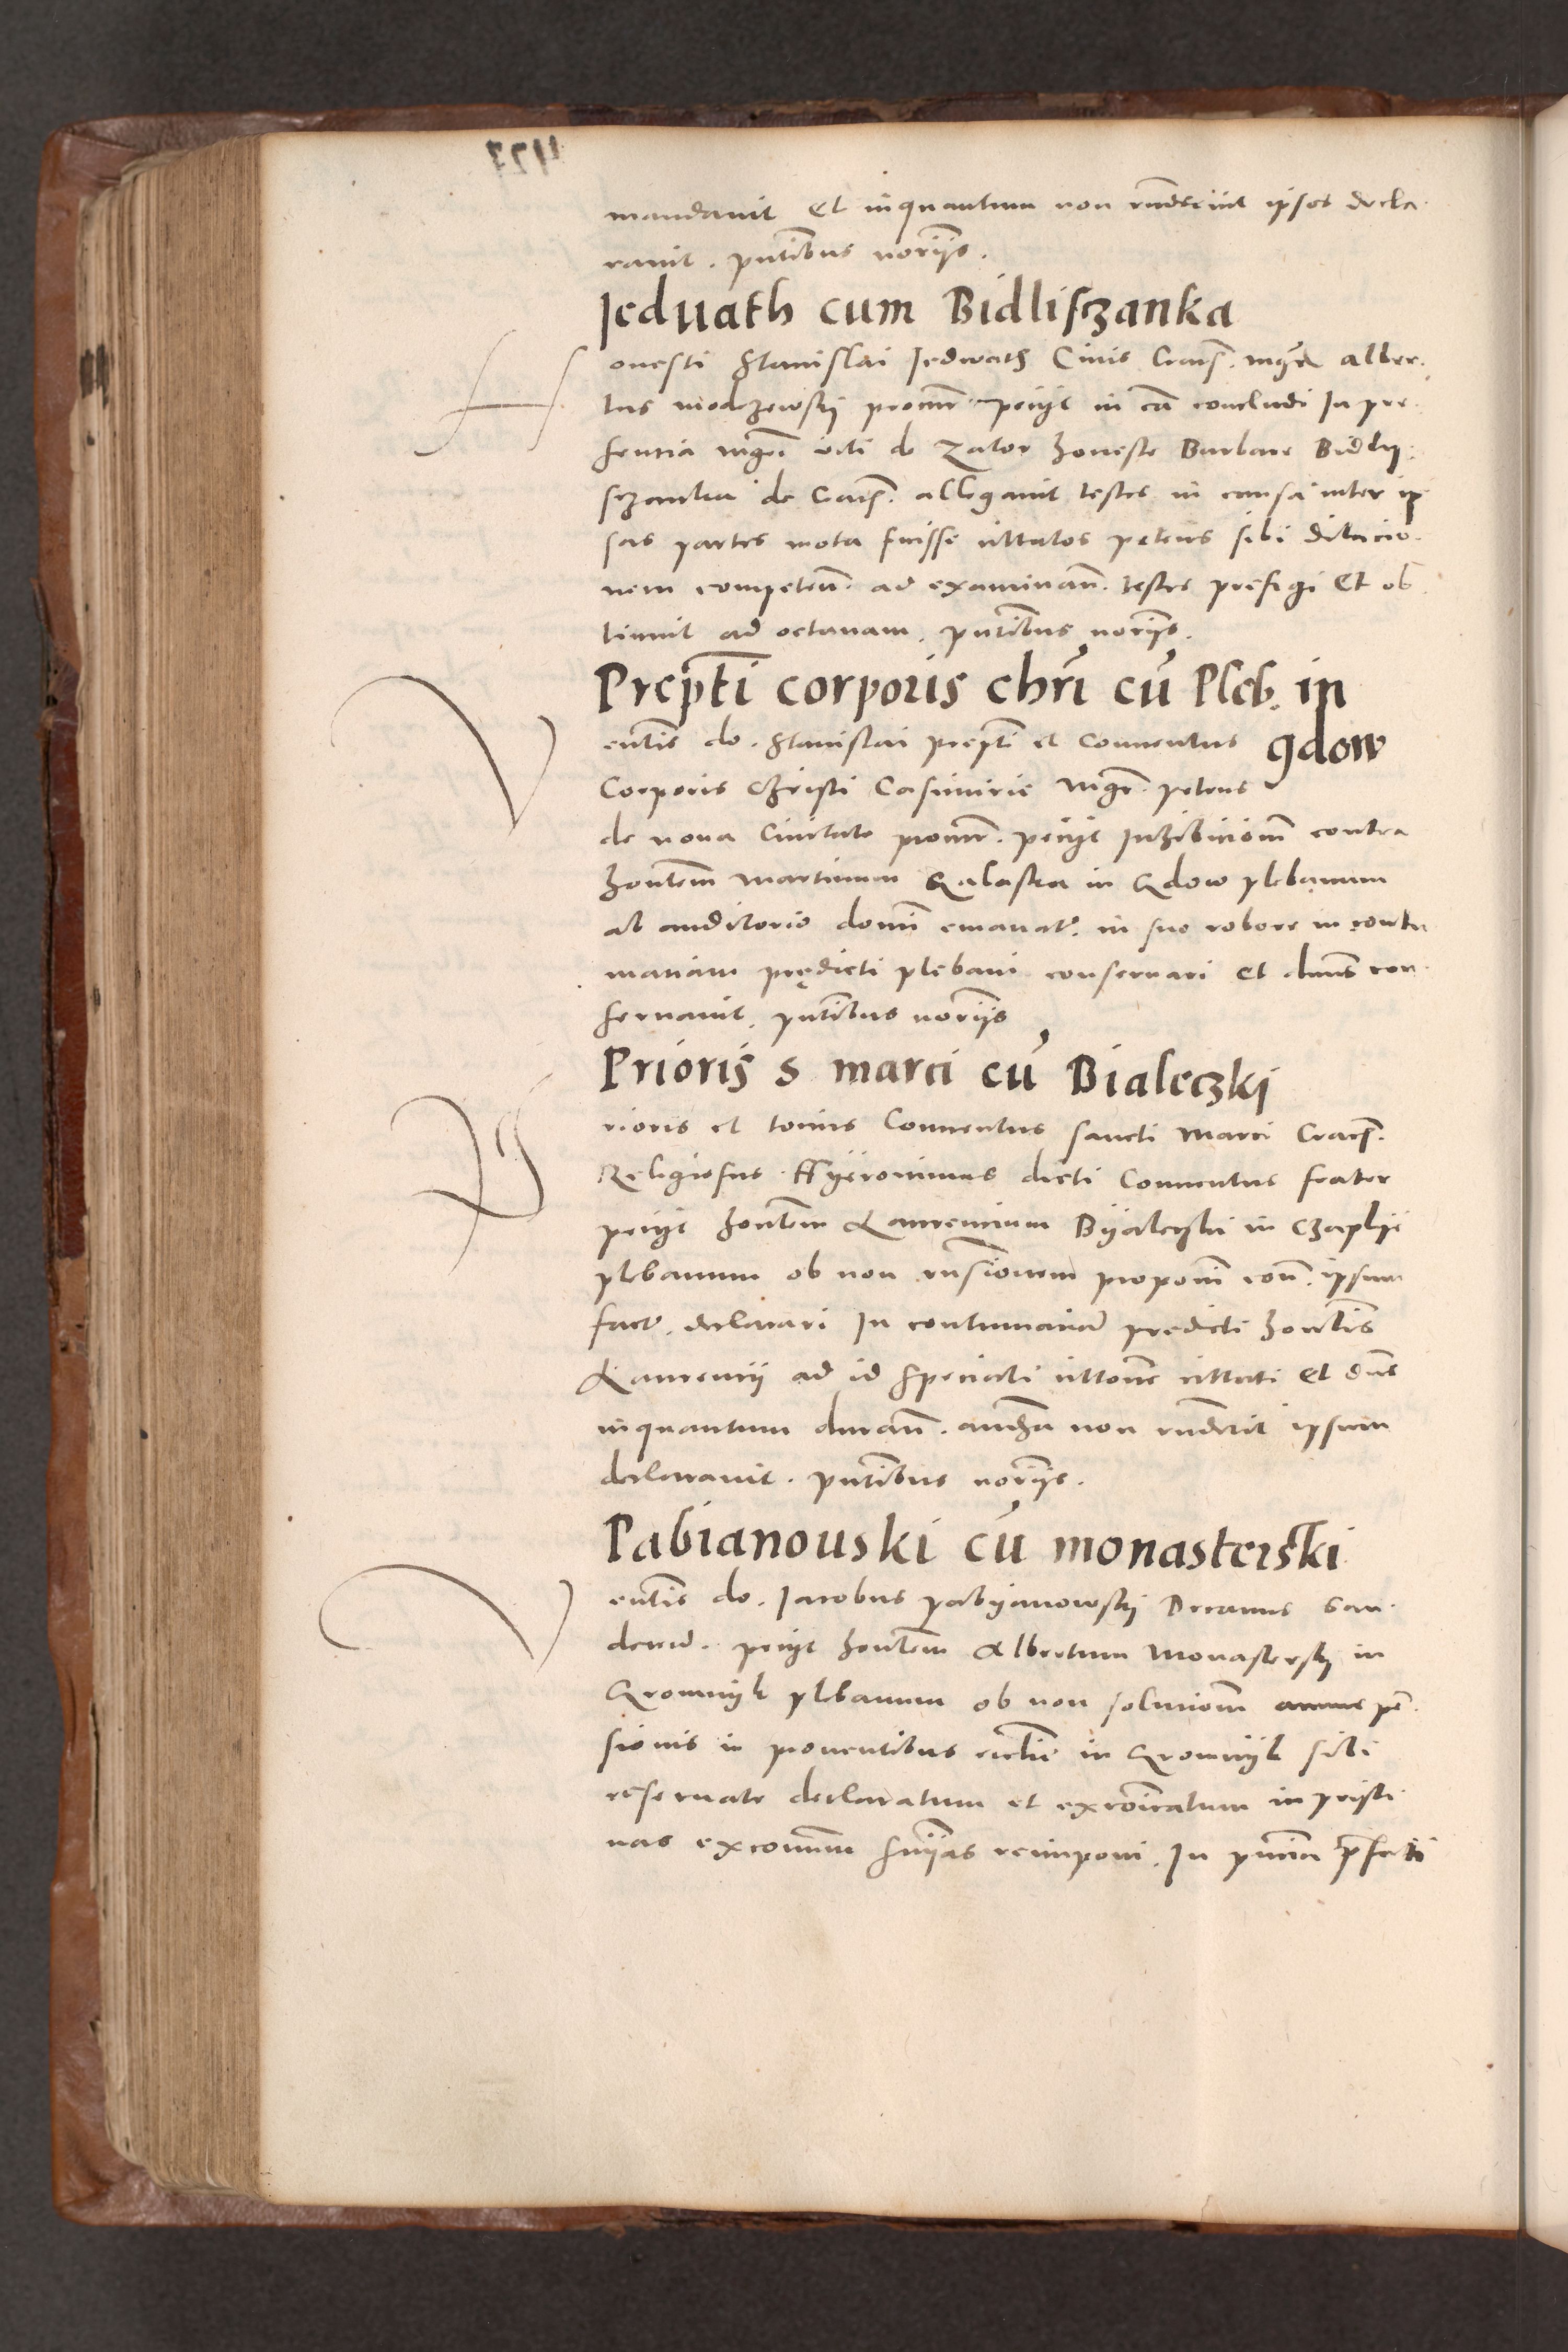 mandavit Et inquantum non rnderint ipsos decla
ravit. pntibus noriis.
Jeduath cum Bidlisczanka
Honesti Stanislai Jedwath Civis Cracs. mgr Alber
tus modrzewskij procur. petijt in ca concludi In pre
sentia mgri viti de Zator honeste Barbare Bidlij
sczanka de Cracs. allegavit testes in causa inter ip
sas partes mota fuisse cittatos petens sibi dilacio
nem competen. ad examinan. testes prefigi Et ob
tinuit ad octavam. pntibus noriis.
Prepti corporis chri cu Pleb. in
gdow
Ventis do. Stanislai prepti et Conventus
Corporis Christi Casimirie mgr. petrus
de nova Civitate procur. petijt Inhibiciom contra
hontem Martinum Galaska in Gdow plebanum
ab auditorio domi emanat. in suo robore in contu
matiam prędicti plebani conservari et dnus con
servavit. pntibus noriis
Prioris S marci cu Bialeczki
Prioris et tocius Conventus sancti Marci Cracs.
Religiosus Hyeronimus dicti Conventus frater
petijt hontem Laurencium Byaleczki in Czaplij
plebanum ob non rnsionem propoom con. ipsum
fact. declarari In contumacia predicti hontis
Laurencij ad id speciali cittone cittati Et dns
inquantum duran. audia non rnderit ipsum
declaravit. pntibus noriis.
Pabianouski cu monasterski
Ventis do. Jacobus pabyanowskij Decanus San
decen. petijt hontem Albertum Monasterskij in
Gromnijk plebanum ob non solutiom annue pe
sionis in proventibus ecclie in Gromnijk sibi
reservate declaratum et excoicatum in pristi
nas excomm snias reimponi. In pncia prefati